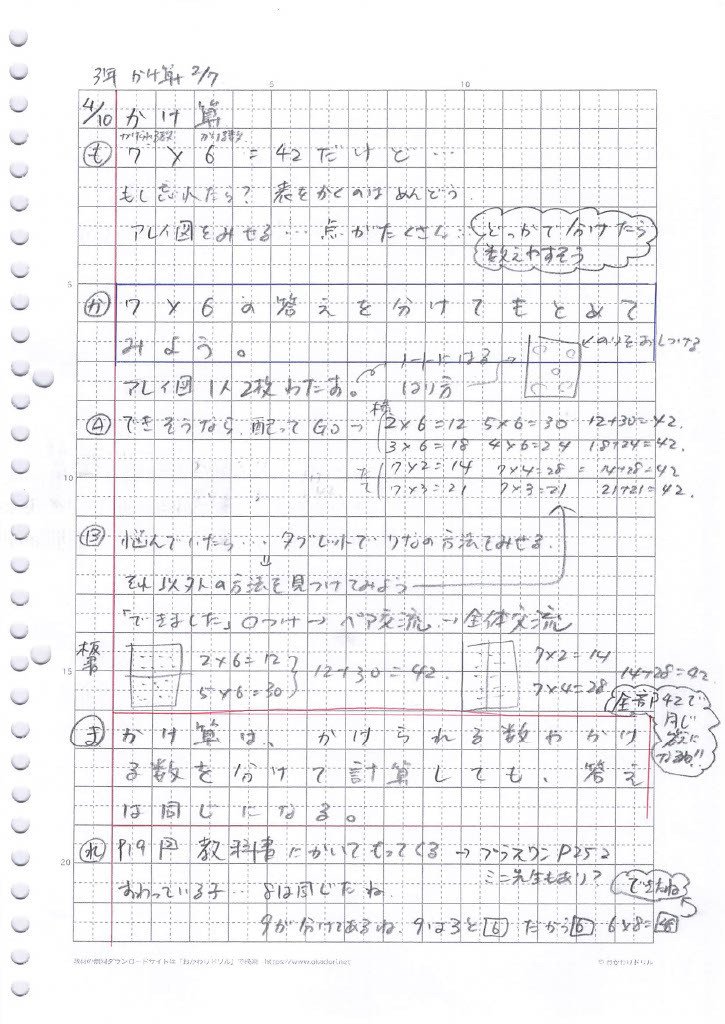 3年 かけ算 2/7
5 10
4/10 かけ算
かけられる数 かける数
も 7×6=42だけど…
もし忘れたら? 表をかくのはめんどう
アレイ図をみせる… 点がたくさん… どっかで分けたら
数えやすそう
5
か 7×6の答えを分けてもとめて
みよう。
ノートにはる のりをおしつける
アレイ図 1人2枚わたす。 はり方
A できそうなら、配ってGO→ 横 2×6=12 5×6=30 12+30=42.
3×6=18 4×6=24 18+24=42.
たて 7×2=14 7×4=28 = 14+28=42
10 7×3=21 7×3=21 21+21=42.
B 悩んでいたら… タブレットで の方法でみせる.
⇓
それ以外の方法を見つけてみよう
「できました」○つけ→ペア交流→全体交流
板書 2×6=12 12+30=42. 7×2=14
15 5×6=30 7×4=28 14+28=42
全部 42で
同じ
答えに
なるね!!
ま かけ算は、かけられる数やかけ
る数を分けて計算しても、答え
は同じになる。
20 れ P19 2 教科書にかいてもってくる→プラスワンP25 2
ミニ先生もあり?
おわっている子… 8は同じだね できたね
9が分けてあるね. 9は3と6 だから6 6×8=48
教材の無料ダウンロードサイトは「おかわりドリル」で検索 https://www.okadori.net
© おかわりドリル